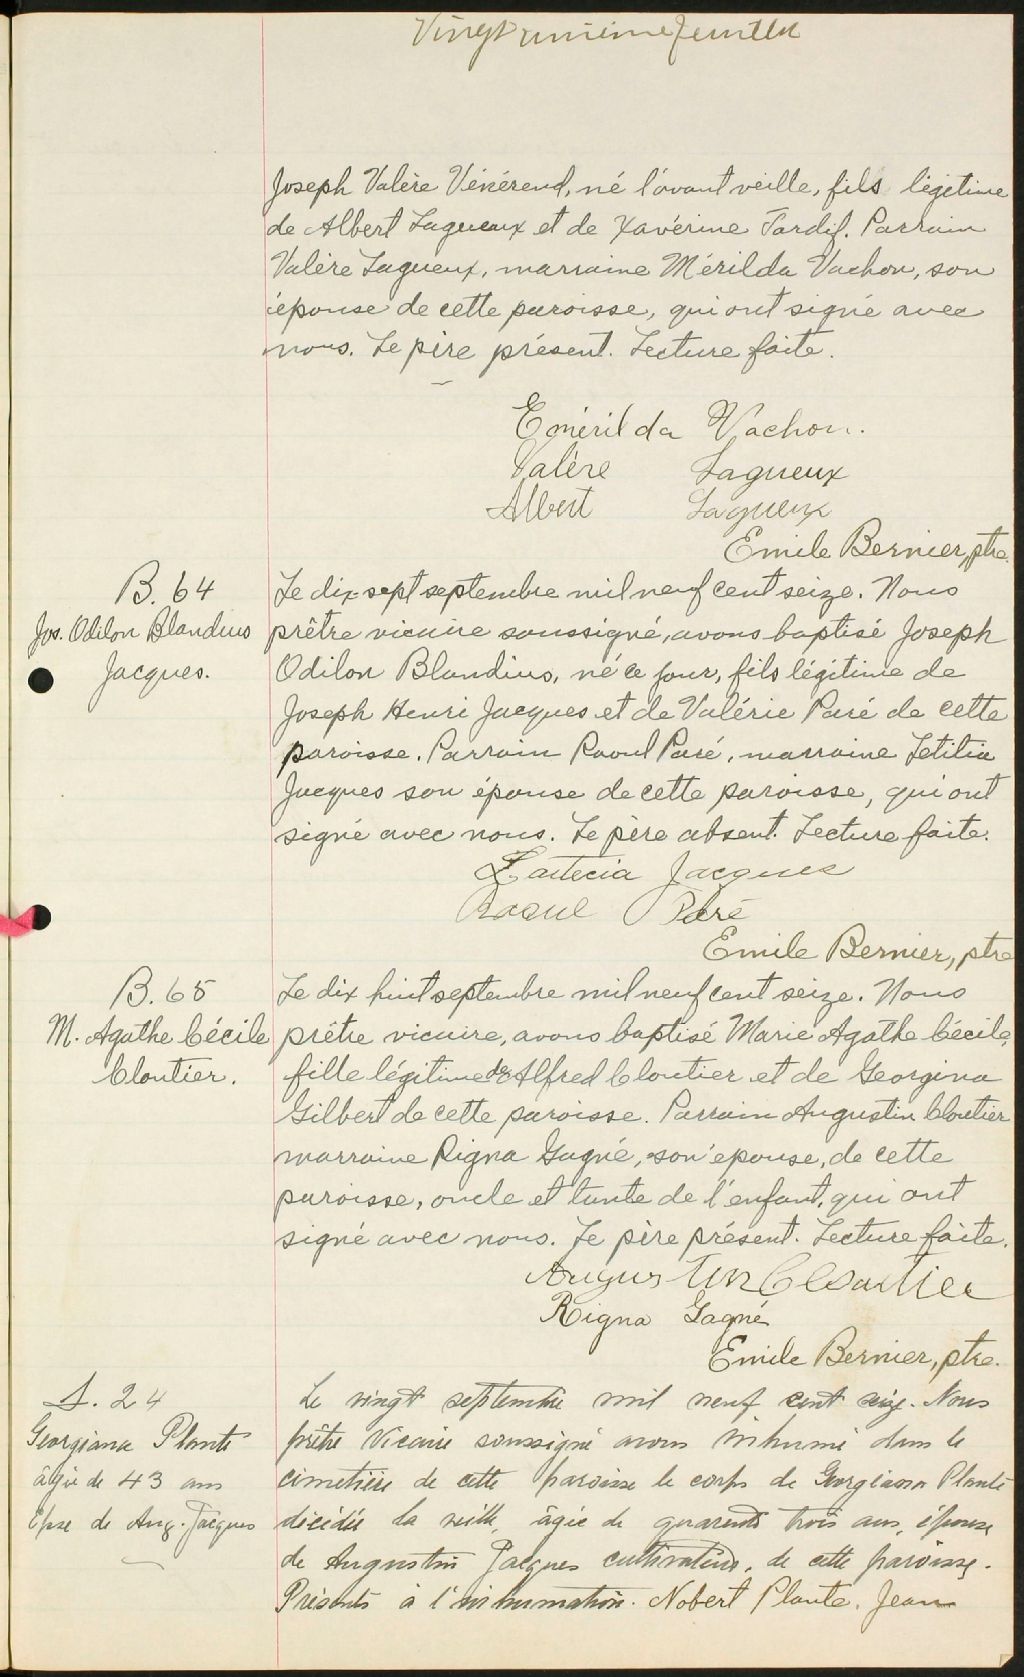 Vingt unième feuillet
Joseph Valère Vénérend, né l'avant veille, fils légitime
de Albert Lagueux et de Xavérine Tardif. Parrain
Valère Lagueux, marraine Mérilda Vachon, son
épouse de cette paroisse, qui ont signé avec
nous. Le père présent. Lecture faite.
Emérilda Vachon.
Valère Lagueux
Albert Lagueux
Emile Bernier, ptre.
B. 64
Jos. Odilon Blandius
Jacques.
Le dix-sept septembre mil neuf cent seize. Nous
prêtre vicaire soussigné, avons baptisé Joseph
Odilon Blandius, né ce jour, fils légitime de
Joseph Henri Jacques et de Valérie Paré de cette
paroisse. Parrain Raoul Paré, marraine Letitia
Jacques son épouse de cette paroisse, qui ont
signé avec nous. Le père absent. Lecture faite.
Laetecia Jacques
Raoul Paré
Emile Bernier, ptre
B. 65
M. Agathe Cécile
Cloutier.
Le dix huit septembre mil neuf cent seize. Nous
prêtre vicaire, avons baptisé Marie Agathe Cécile,
fille légitime de Alfred Cloutier et de Georgina
Gilbert de cette paroisse. Parrain Augustin Cloutier
marraine Rigna Gagné, son épouse, de cette
paroisse, oncle et tante de l'enfant, qui ont
signé avec nous. Le père présent. Lecture faite.
Augustin Cloutier
Rigna Gagné
Emile Bernier, ptre.
S. 24
Georgiana Plante
âgée de 43 ans
Epse de Aug. Jacques
Le vingt septembre mil neuf cent seize. Nous
prêtre Vicaire soussigné avons inhumé dans le
cimetière de cette paroisse le corps de Georgianna Plante
décédée la veille, âgée de quarante trois ans, épouse
de Augustin Jacques cultivateur, de cette paroisse.
Présents à l'inhumation. Nobert Plante. Jean